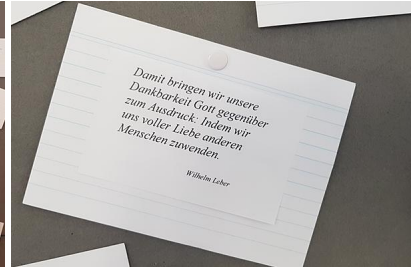 Damit bringen wir unsere
Dankbarkeit Gott gegenüber
zum Ausdruck: Indem wir
uns voller Liebe anderen
Menschen zuwenden.
Wilhelm Leber